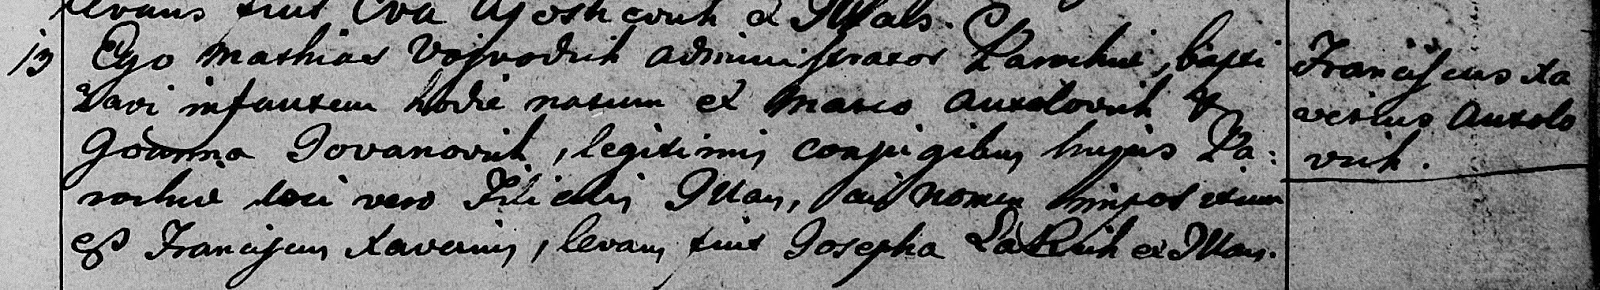 levans fuit Eva
13 Ego Mathias Vojvodich Administrator Parochiæ, bapti
zavi infantem hodie natum ex Marco Antolovich &
Goanna Jovanovich, legitimis conjugibus hujus Pa:
rochiæ loci vero Filialis Illari, cui nomen impositum
est Franciscus Xaverius, levans fuit Josepha ex
Franciscus Xa
verius Antolo
vich.